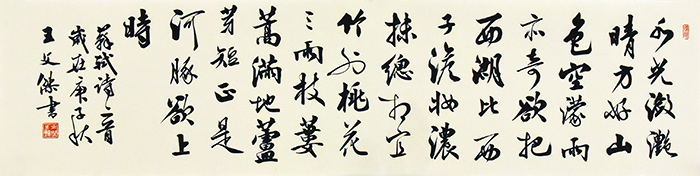 水光瀲灩
晴方好山
色空濛雨
亦奇欲把
西湖比西
子澹妝濃
抹總相宜
竹外桃花
三兩枝蔞
蒿滿地蘆
芽短正是
河豚欲上
時
蘇軾詩二首
歲在庚子秋
王文傑書